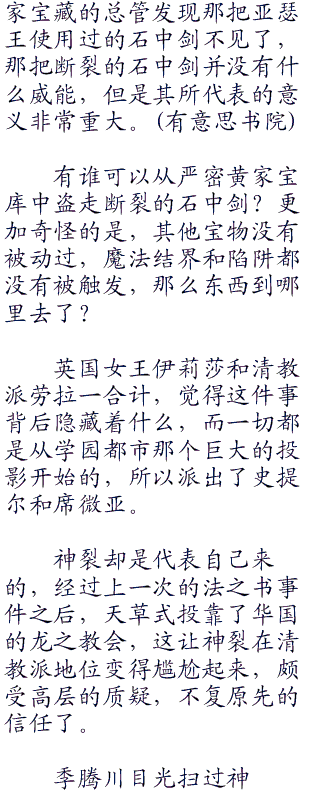 家宝藏的总管发现那把亚瑟
王使用过的石中剑不见了，
那把断裂的石中剑并没有什
么威能，但是其所代表的意
义非常重大。(有意思书院)
有谁可以从严密黄家宝
库中盗走断裂的石中剑？更
加奇怪的是，其他宝物没有
被动过，魔法结界和陷阱都
没有被触发，那么东西到哪
里去了？
英国女王伊莉莎和清教
派劳拉一合计，觉得这件事
背后隐藏着什么，而一切都
是从学园都市那个巨大的投
影开始的，所以派出了史提
尔和席微亚。
神裂却是代表自己来
的，经过上一次的法之书事
件之后，天草式投靠了华国
的龙之教会，这让神裂在清
教派地位变得尴尬起来，颇
受高层的质疑，不复原先的
信任了。
季腾川目光扫过神